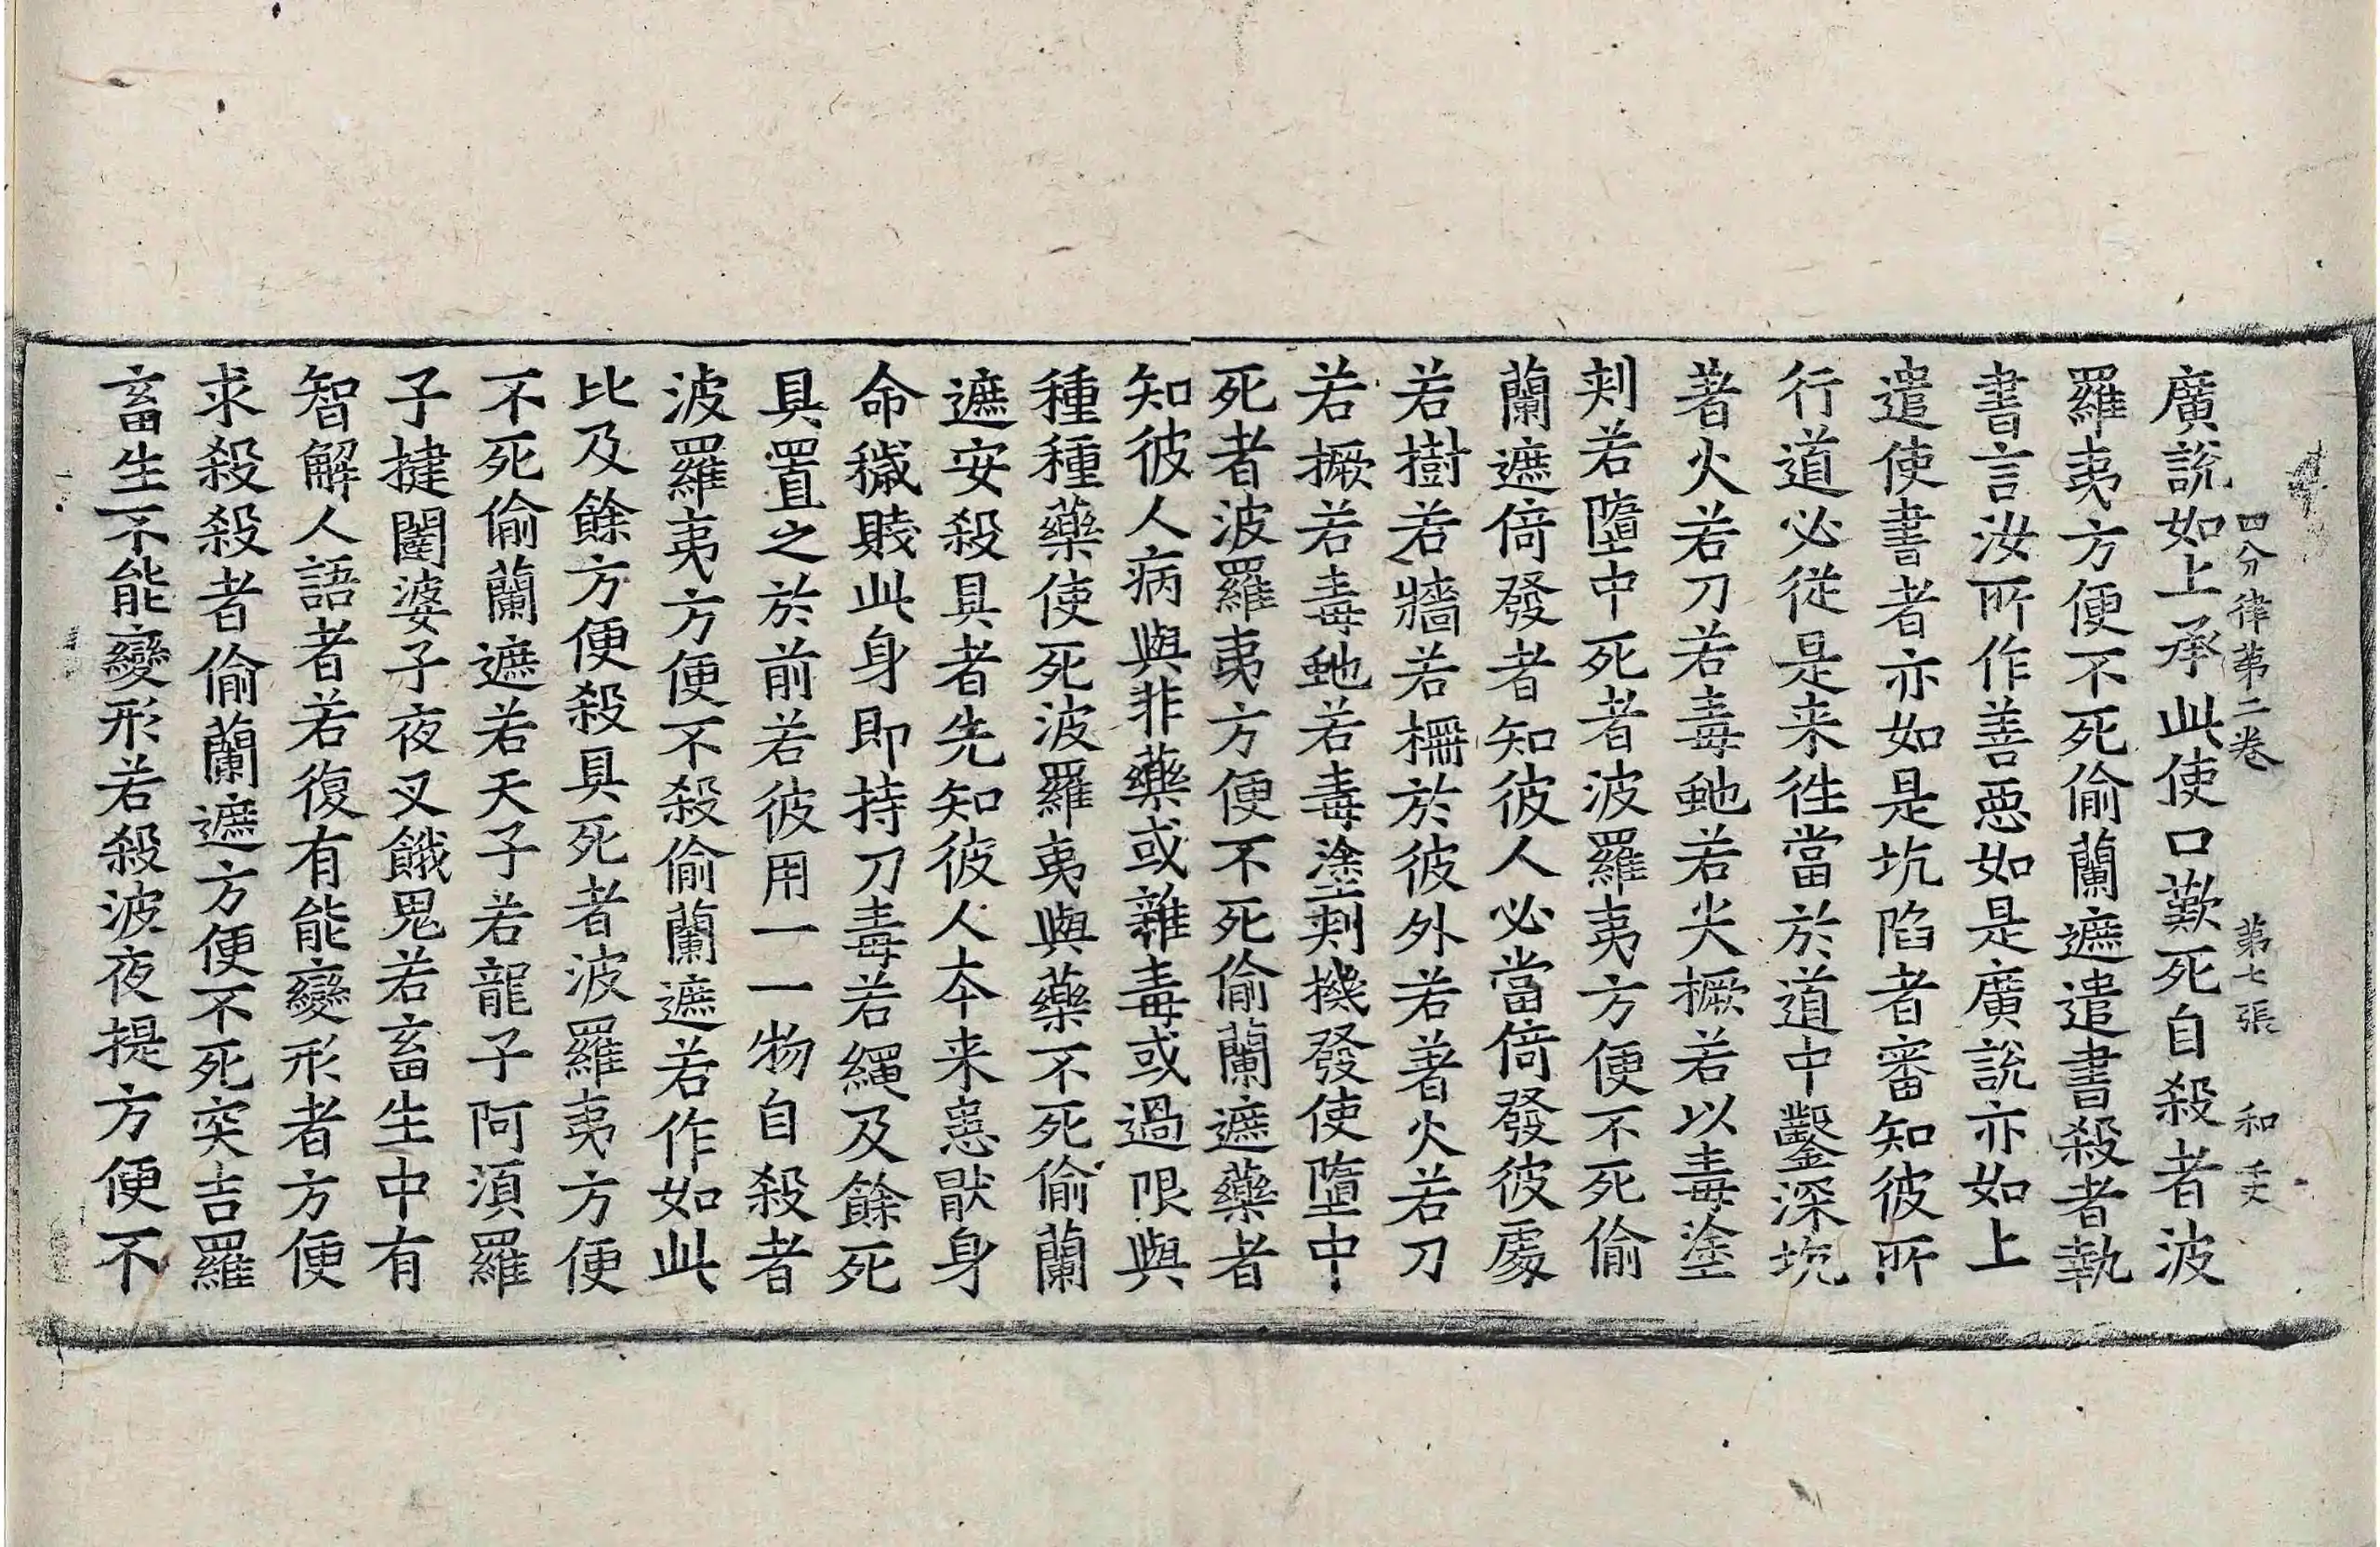 四分律第二卷 第七張 和
廣說如上承此使口歎死自殺者波
羅夷方便不死偷蘭遮遣書殺者執
書言汝所作善惡如是廣說亦如上
遣使書者亦如是坑陷者審知彼所
行道必從是来往當於道中鑿深坑
著火若刀若毒虵若尖橛若以毒塗
刺若墮中死者波羅夷方便不死偷
蘭遮倚發者知彼人必當倚發彼處
若樹若牆若柵於彼外若著火若刀
若橛若毒虵若毒塗刺機發使墮中
死者波羅夷方便不死偷蘭遮藥者
知彼人病與非藥或雜毒或過限與
種種藥使死波羅夷與藥不死偷蘭
遮安殺具者先知彼人夲来患猒身
命穢賤此身即持刀毒若繩及餘死
具置之於前若彼用一一物自殺者
波羅夷方便不殺偷蘭遮若作如此
比及餘方便殺具死者波羅夷方便
不死偷蘭遮若天子若龍子阿須羅
子揵闥婆子夜叉餓鬼若畜生中有
智解人語者若復有能變形者方便
求殺殺者偷蘭遮方便不死突吉羅
畜生不能變形若殺波夜提方便不